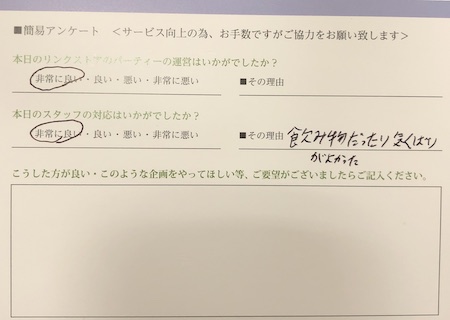 ■簡易アンケート ＜サービス向上の為、お手数ですがご協力をお願い致します＞
本日のリンクストアのパーティーの運営はいかがでしたか？
非常に良い・良い・悪い・非常に悪い ■その理由
本日のスタッフの対応はいかがでしたか？
非常に良い・良い・悪い・非常に悪い ■その理由 飲み物だったり気くばり
がよかった
こうした方が良い・このような企画をやってほしい等、ご要望がございましたらご記入ください。